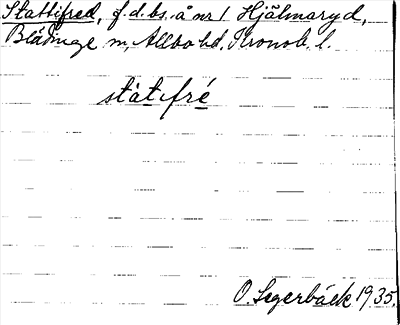 Stattifred, f.d. bs. å nr 1 Hjälmaryd,
Blädinge sn, Allbo hd, Kronob. l.
stàtifré
O. Segerbäck 1935.